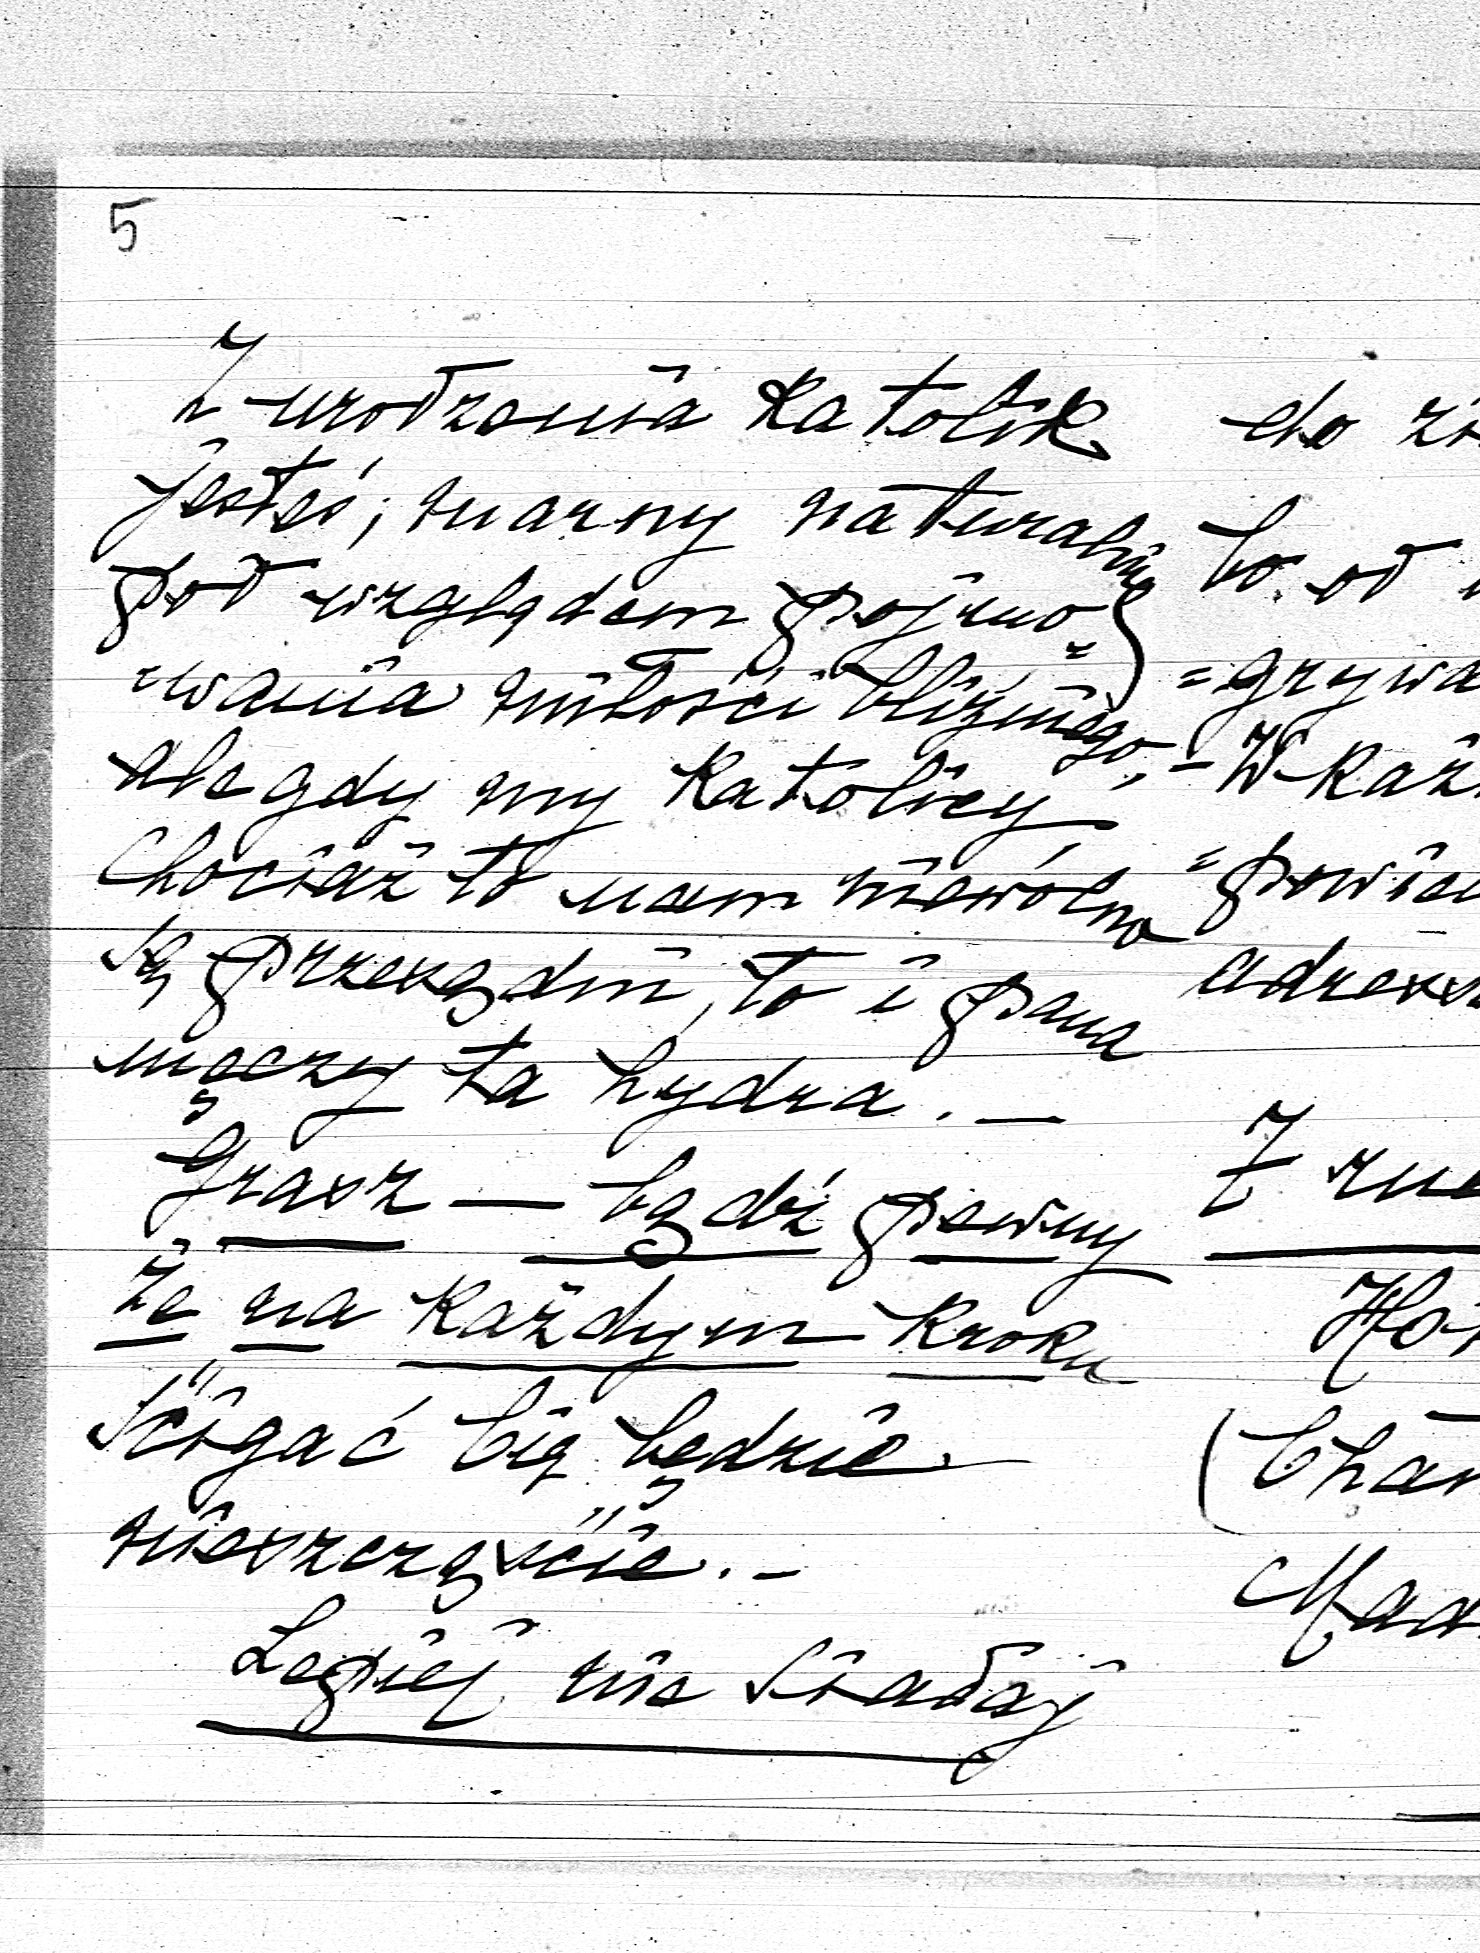 5
Z urodzenia Katolik
jesteś; marny naturalnie
pod względem pojmo=
=wania miłości bliźniego, –
ale gdy my Katolicy,
Chociaż to nam niewolno
są przesądni, to i pana
męczy ta hydra. —
Grasz — bądź pewny
że na Każdym Kroku
ścigać Cię będzie
nieszczęście. –
Lepiej nie siadaj
do
bo od
=grywa
W Każ
=powie
adress
Z